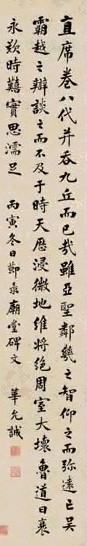 直席卷八代并吞九丘而已哉雖亞聖鄰幾之智仰之而彌遠亡吴
霸越之辯談之而不及于時天歷浸微地維將絶周室大壞魯道日衰
永歎時艱實思濡足 丙寅冬日節录廟堂碑文 華允誠